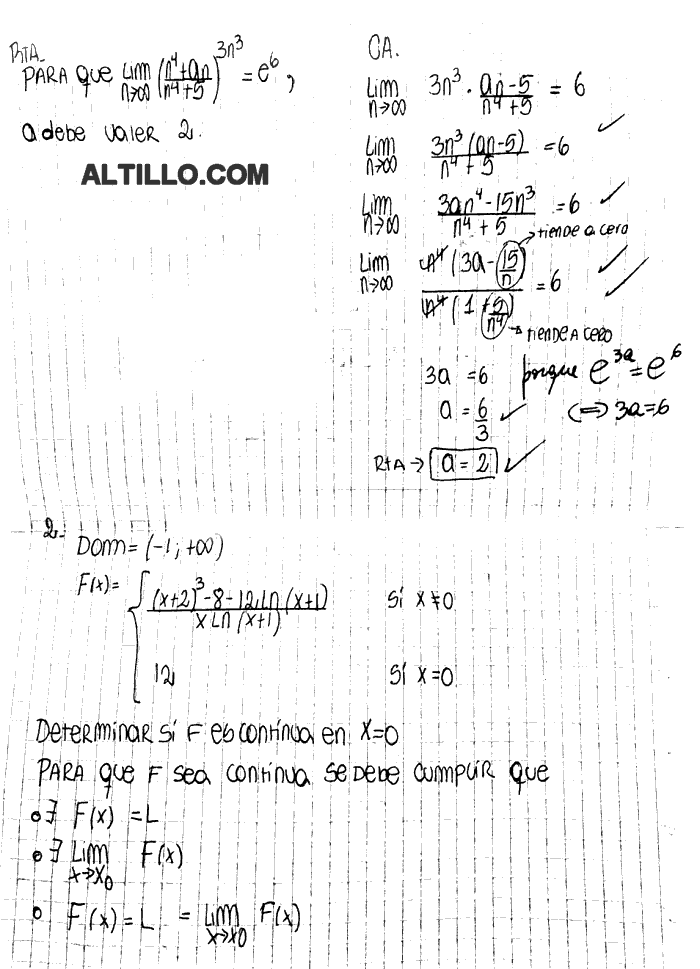 RTA.
PARA que lim n→∞ (n⁴+an / n⁴+5)^3n³ = e⁶,
a debe valer 2.
ALTILLO.COM
CA.
Lim n→∞ 3n³ · an-5 / n⁴+5 = 6
Lim n→∞ 3n³(an-5) / n⁴+5 = 6 ✓
Lim n→∞ 3an⁴-15n³ / n⁴+5 = 6 ✓
→tiende a cero
Lim n→∞ n⁴(3a-15/n) / n⁴(1+5/n⁴) = 6 ✓ ✓
→ tiende A cero
3a = 6 porque e^3a = e⁶
a = 6/3 ✓ (⇔) 3a=6
RtA → a = 2 ✓
2. Dom= (-1; +∞)
F(x)= { (x+2)³-8-12.Ln(x+1) / x Ln(x+1) Sí x≠0
12 Sí x=0
Determinar sí F es contínua en x=0
PARA que F sea contínua se debe cumplir que
∘∃ F(x) = L
∘∃ Lim x→x₀ F(x)
∘ F(x) = L = Lim x→x0 F(x)